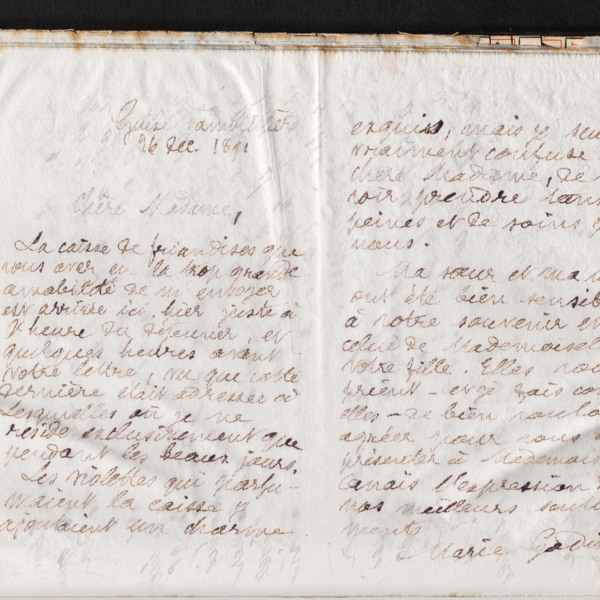 26 Dec. 1891
Chère Madame,
La caisse de friandises que
vous avez eu la trop grande
amabilité de m'envoyer
est arrivée ici, hier juste à
l'heure du déjeuner, et
quelques heures avant
votre lettre, vu que cette
dernière était adressée à
Lesquielles où je ne
réside exclusivement que
pendant les beaux jours.
Les violettes qui parfu-
maient la caisse y
ajoutaient un charme
exquis, mais je
vraiment confuse
chère Madame, de
voir prendre tant
peines et de soins
nous.
Ma sœur et ma
ont été bien
à votre souvenir et
celui de
votre fille. Elles vous
prient - et je fais
elles - de bien
agréer pour vous
présenter à
Anaïs l'expression
nos meilleurs
ments
Marie